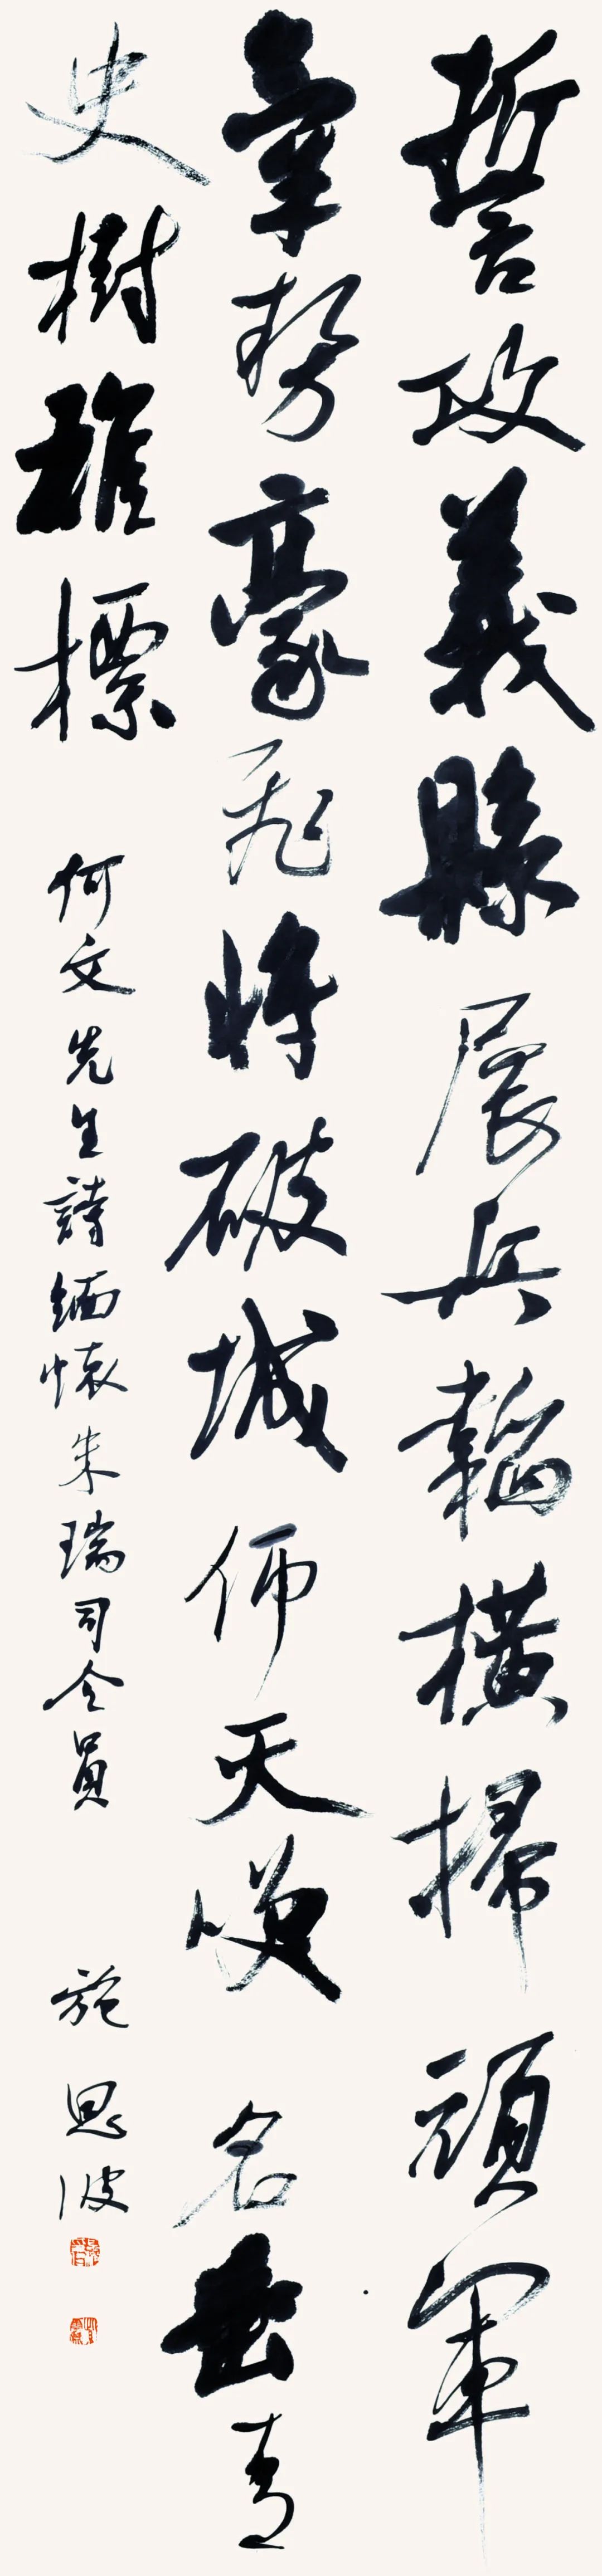 誓攻義縣展兵韜橫掃頑軍
氣勢豪飛將破城仰天嘆名垂青
史樹雄標 何文先生詩緬懷朱瑞司令員 施恩波